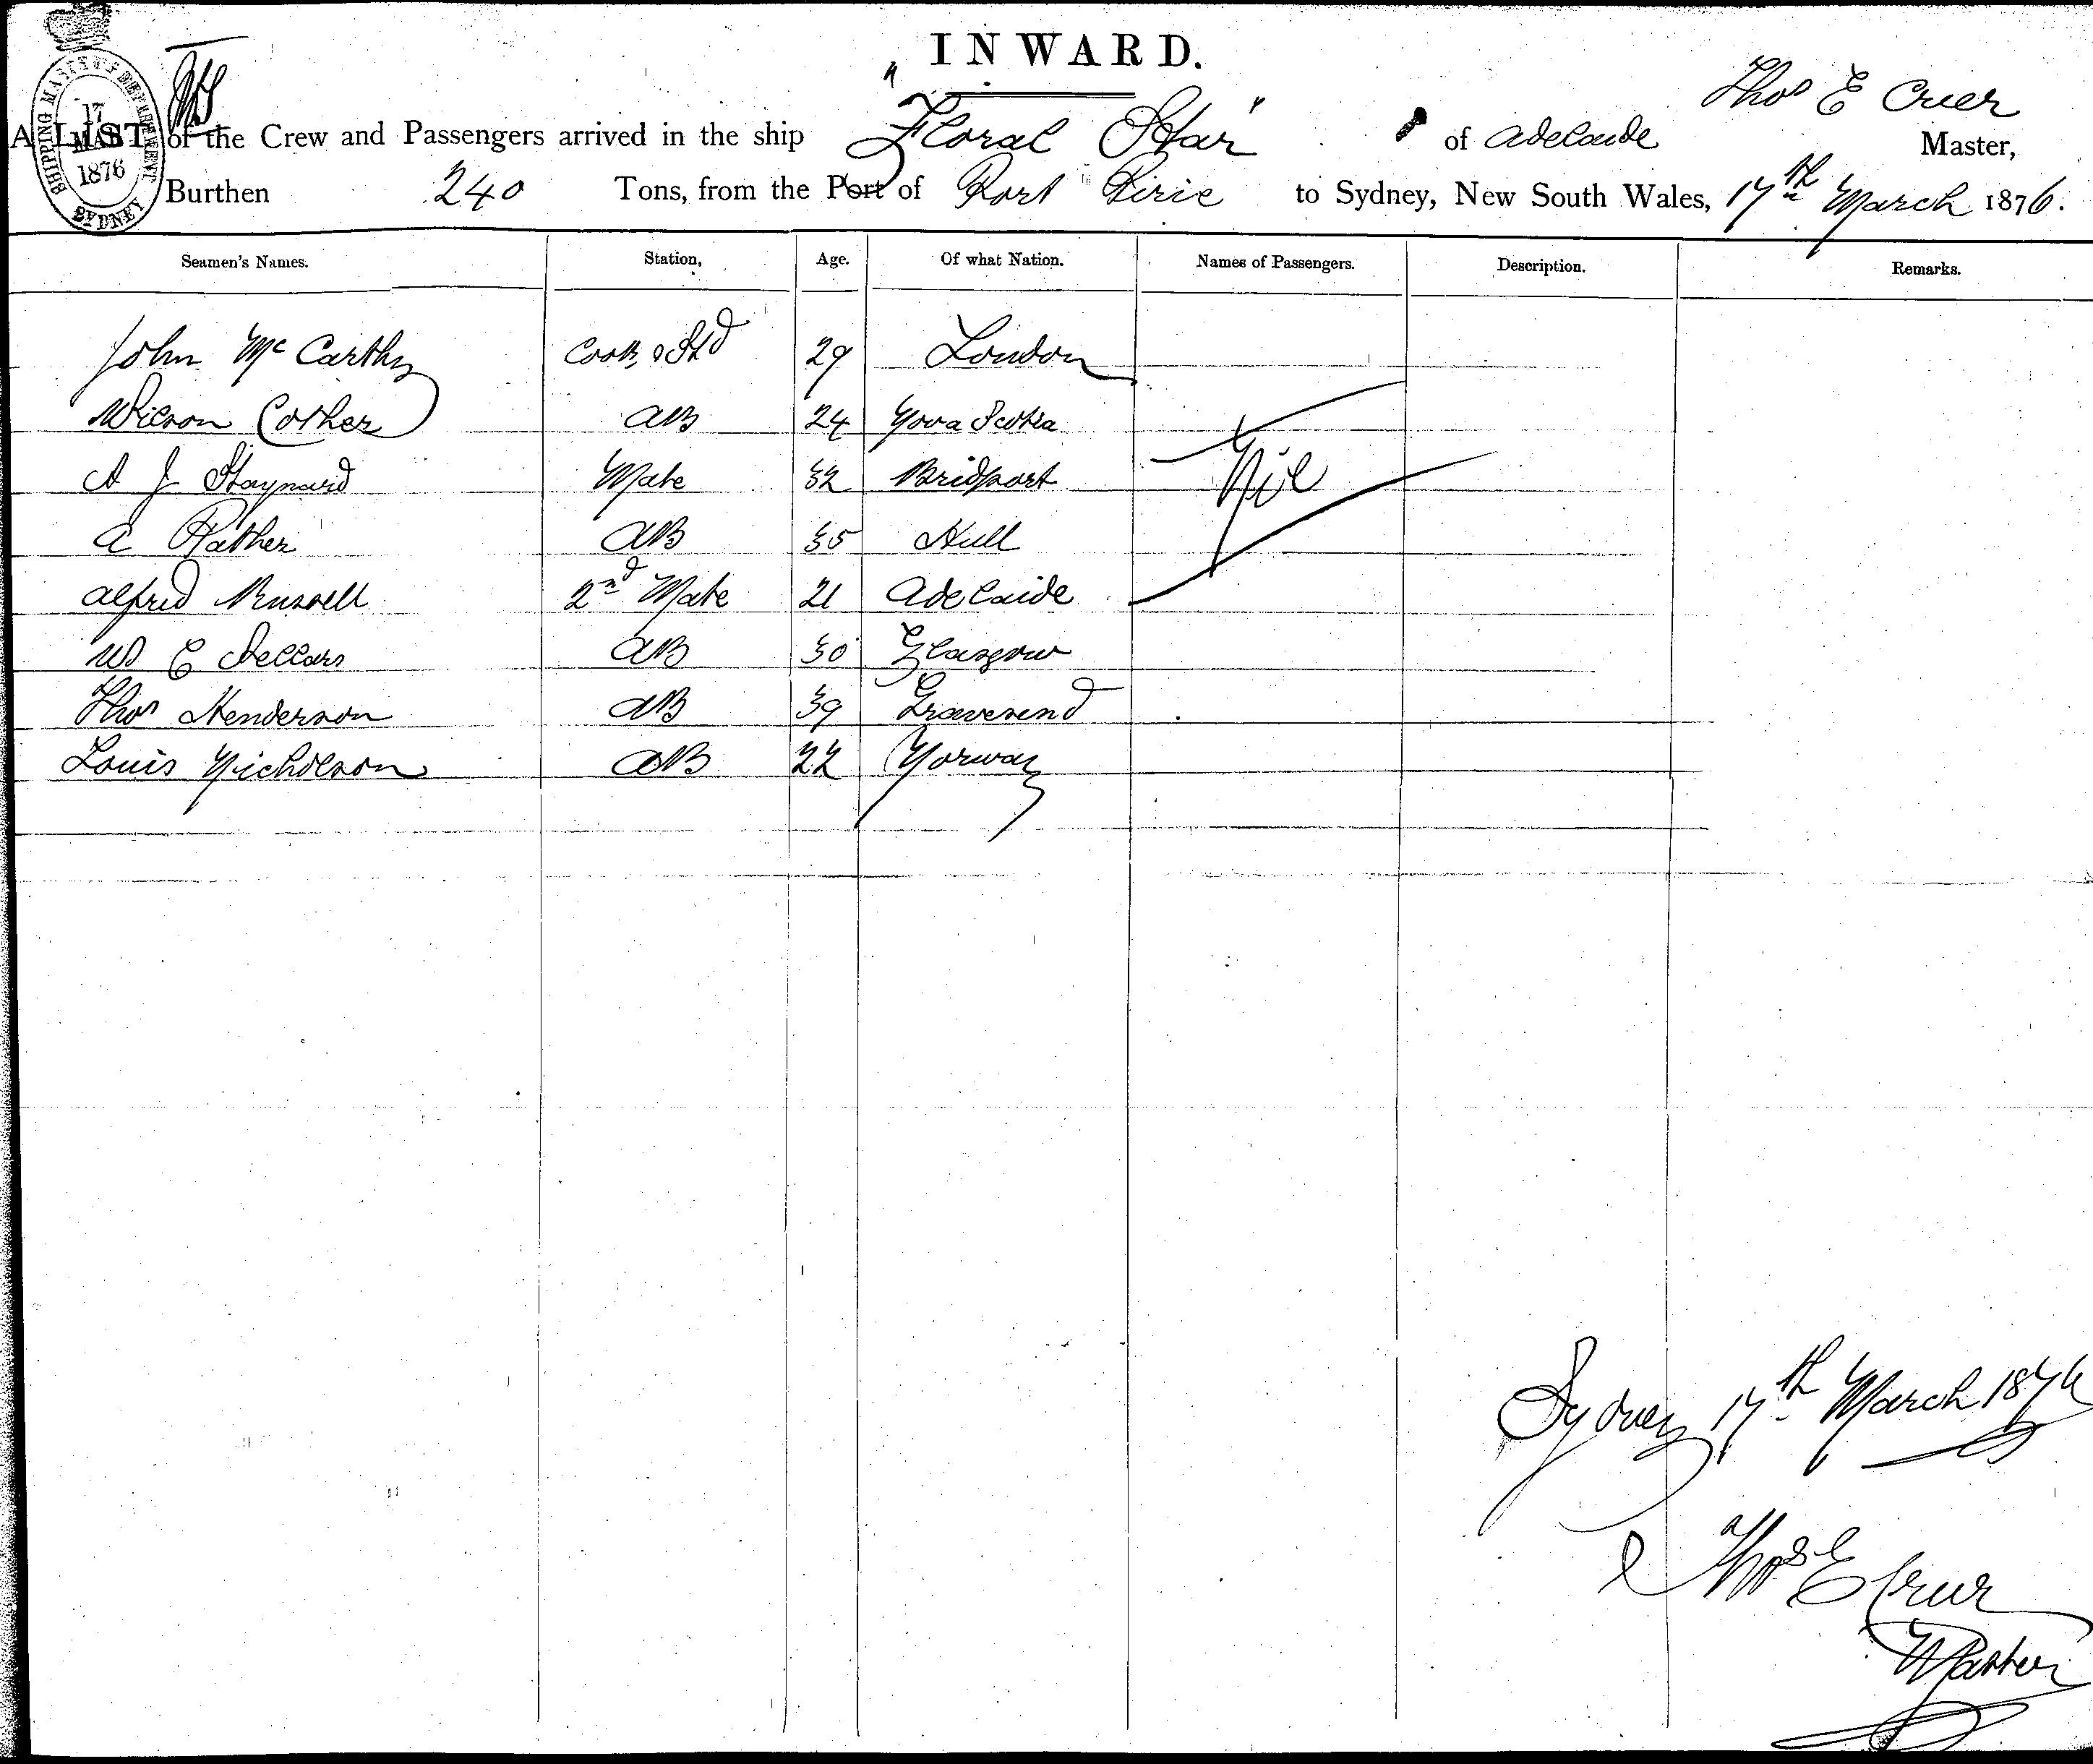 INWARD.
SHIPPING MASTER'S DEPARTMENT
17
MAR
1876
SYDNEY
Thos E Cruer
A LIST of the Crew and Passengers arrived in the ship "Floral Star" of Adelaide Master,
Burthen 240 Tons, from the Port of Port Pirie to Sydney, New South Wales, 17th March 1876.
Seamen's Names. Station, Age. Of what Nation. Names of Passengers. Description. Remarks.
John McCarthy Cook & Std 29 London
Wilson Cother AB 24 Nova Scotia
A J Staynard Mate 32 Bridport Nil
A Rather AB 35 Hull
Alfred Russell 2nd Mate 21 Adelaide
W E Sellars AB 30 Glasgow
Thos Henderson AB 39 Gravesend
Louis Nicholson AB 22 Norway
Sydney 17th March 1876
Thos E Cruer
Master